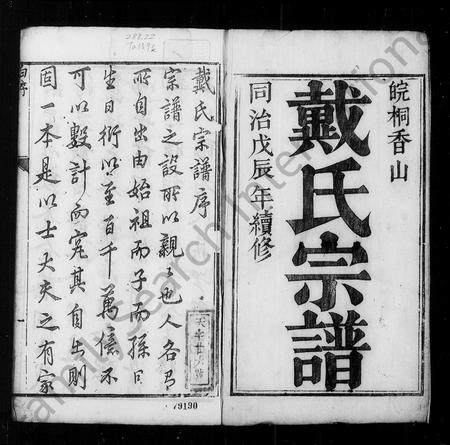 皖桐香山
戴氏宗譜
同治戊辰年續修
戴氏宗譜序
宗譜之設所以親親也人各有
所自出由始祖而子而孫日
生日衍以至百千萬億不
可以數計而究其自出則
固一本是以士大夫之有家
79190